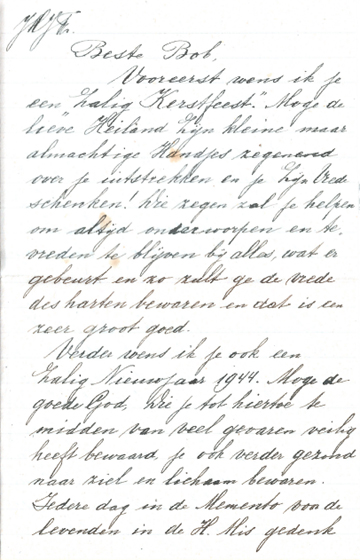 Beste Bob,
Vooreerst wens ik je
een "Zalig Kerstfeest." Moge de
lieve Heiland Zijn kleine maar
almachtige Handjes zegenend
over je uitstrekken en je Zijn Vrede
schenken! Die zegen zal je helpen
om altijd onderworpen en te-
vreden te blijven bij alles, wat er
gebeurt en zo zult ge de vrede
des harten bewaren en dat is een
zeer groot goed.
Verder wens ik je ook een
Zalig Nieuwjaar 1944. Moge de
goede God, Die je tot hiertoe te
midden van veel gevaren veilig
heeft bewaard, je ook verder gezond
naar ziel en lichaam bewaren.
Iedere dag in de Memento van de
levenden in de H. Mis gedenk